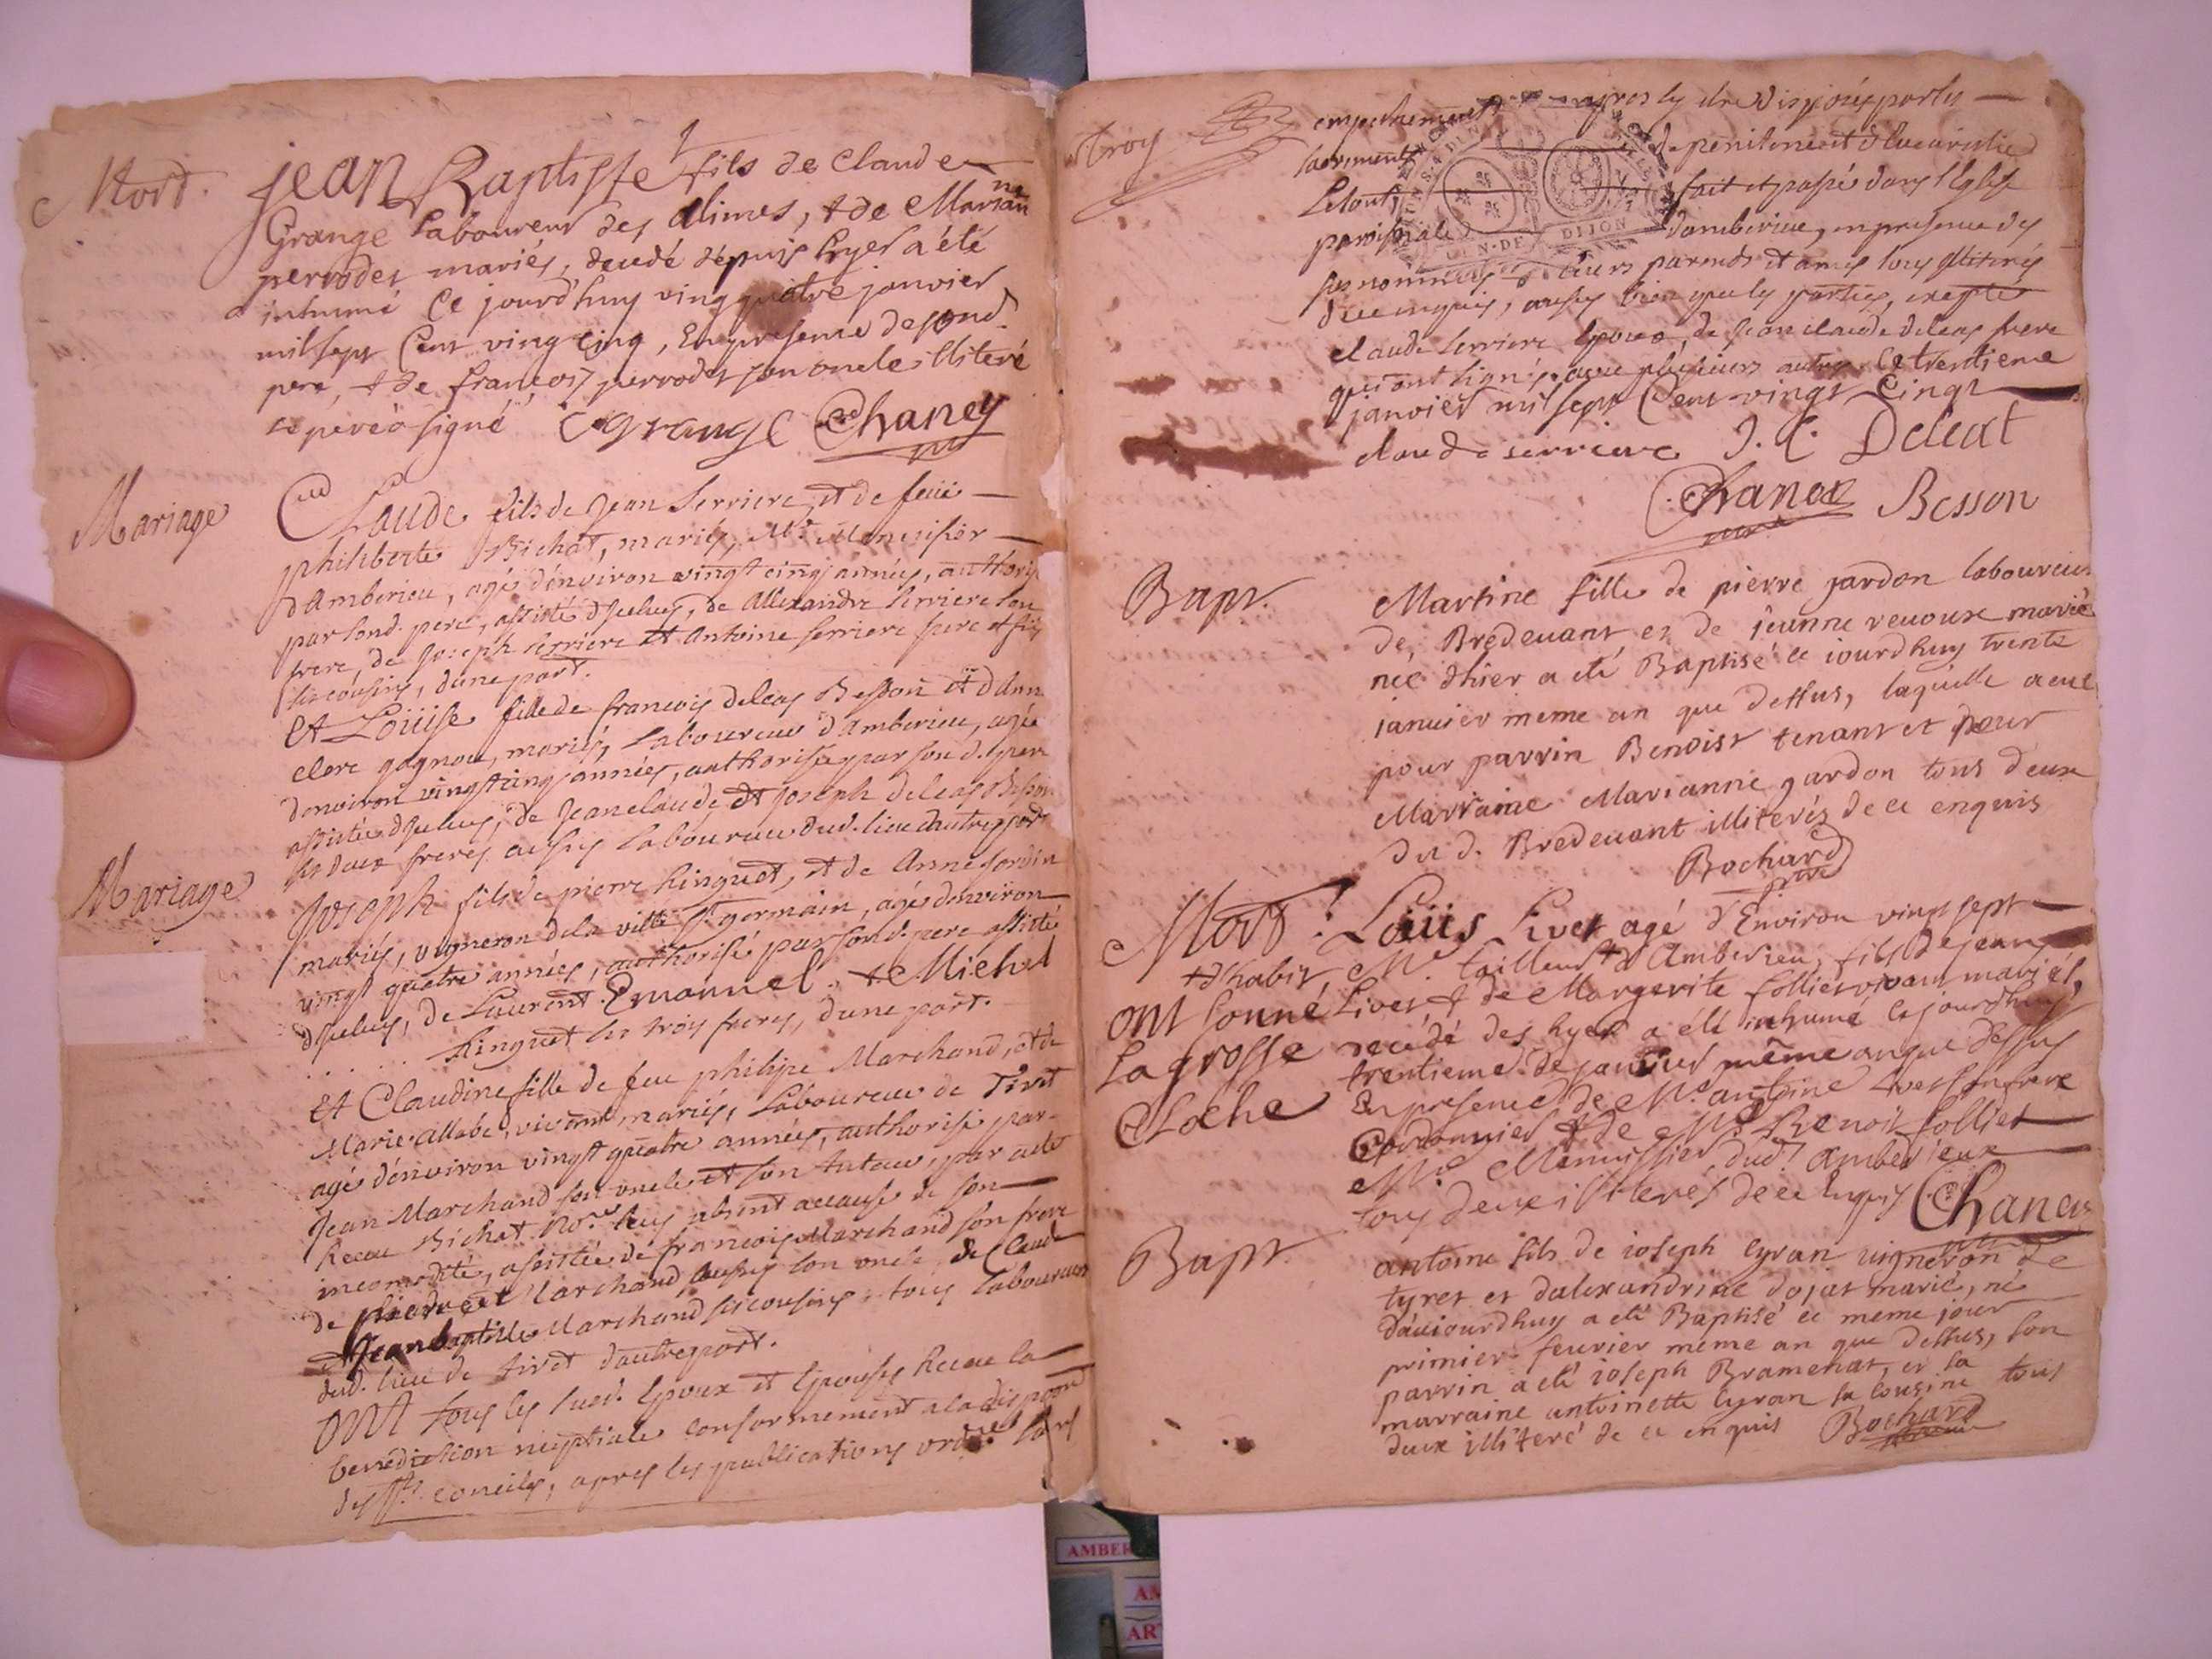 Mort. jean Baptiste fils de Claude
Grange Laboureur des alimes, & de Marianne
perrodet mariés, decedé dépuis hyer a été
inhumé Ce jourd'huy vingquatre janvier
mil sept Cent ving Cinq, En presence de sond.
pere, & de françois perrodet son oncle illiteré
le pere a signé C grange Chaney
Mariage Claude fils de Jean Serriere, et de feüe
philiberte Bichat, mariés, Mr. Menuisier
d'Amberieu, agé d'environ vingt cinq années, authorisé
par sond. pere, assisté d'jceluy, de Allexandre Serriere son
frere, de Joseph Serriere et Antoine Serriere pere et fils
ses cousins, d'une part.
Et Loüise fille de francois deleas Besson et d'Ann
clere gagnou, mariés, Laboureur d'Amberieu, agée
d'environ vingt cinq années, authorisée par son d. pere
assistée d'jceluy, de Jean claude et joseph deleas Besson
ses deux freres aussy Laboureur dud. lieu d'autre part
Mariage Joseph fils de pierre Ringuet, et de Anne Jordin
mariés, vigneron de la ville St. germain, agé d'environ
vingt quatre années, authorisé par sond. pere assisté
d'jceluy, de Laurent, Emannuel, & Michel
Ringuet ses trois freres, d'une part.
Et Claudine fille de feu philipe Marchand, et de
Marie allabé, vivant mariés, Laboureur de Tiret
agé d'environ vingt quatre années, authorisé par
Jean Marchand son oncle et son tuteur, par acte
Receu Bichat No.re Luy absent acause de son
incomodité, assistée de francois Marchand son frere
de pierre Marchand aussy son oncle, de Claude
et Jean baptiste Marchand ses cousins, tous laboureurs
dud. lieu de tiret d'autre part.
Ont tous les susd. Epoux et Epouses Receu la
benediction nuptiale conformement a la
des Sts. conciles, apres les publications ordres sans
troy
empechement apres les
sacrements de penitence et d'Eucaristie
Letout fait et passé dans l'Eglise
paroissiale d'amberieu, en presence des
susnommés leurs parents et amis tous illiterés
de ce enquis, aussy bien que les parties, excepté
claude Serriere Epoux, de Jean claude deleas frere
qui ont signés avec plusieurs autres Ce trentieme
janvier mil sept Cent vingt Cinq
claude serriere J. C. Deleat
Chaney Besson
Bapt. Martine fille de pierre gardon laboureur
de Bredevant et de jeanne revoux marié
née d'hier a eté Baptisé ce iourdhuy trente
ianvier meme an que dessus, laquelle a eut
pour parrin Benoist tenant et pour
Marraine Marianne gardon tous deux
du d. Bredevant illiterés de ce enquis
Bochard
Mort. Loüis Livet agé d'Environ vingt sept
& d'habit, Me. tailleur d'Amberieu, fils de jean
ont sonné Livet & de Margerite follier vivant mariés,
La grosse decédé des hyer a été inhumé Ce jourdhuy
Cloche trentieme de janvier même an que dessus
En presence de Me antoine Livet son frere
Cordonnier & de Me Benoit follier
Me. Menuissier dud. Amberieux
tous deux illiterés de ce enquis Chaney
Bapt. antoine fils de ioseph Cyran vigneron de
tyret et d'alexandrine dojat marié, né
d'auiourdhuy a eté Baptisé ce meme jour
primier fevrier meme an que dessus, son
parrin a eté ioseph Bramerat, et la
marraine antoinette Cyran sa cousine tous
deux illiteré de ce enquis Bochard
DIJON
AMBER
AR